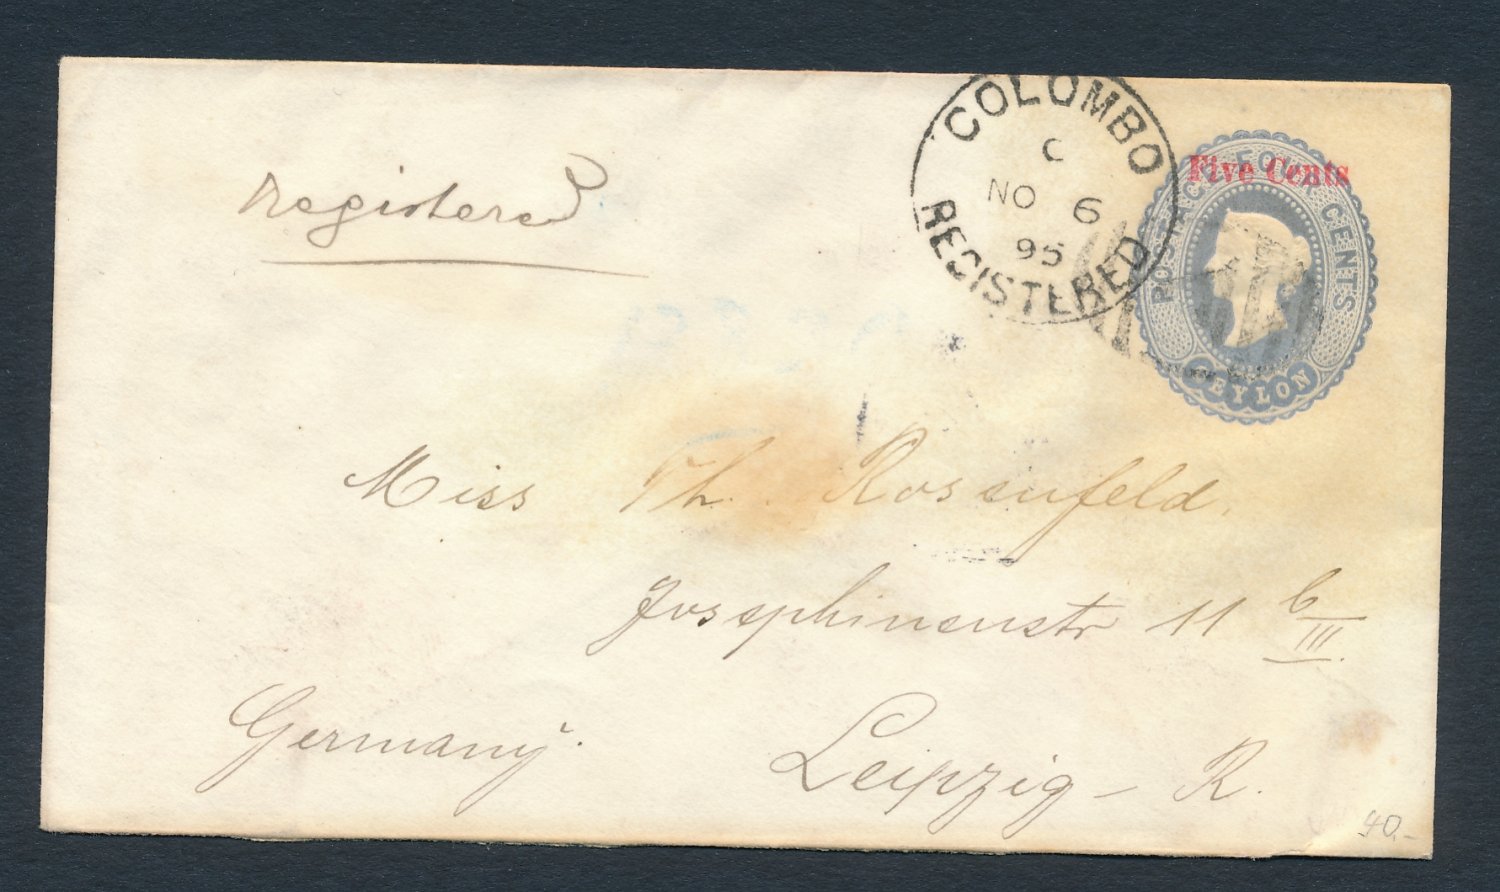 COLOMBO
C
NO 6
95
REGISTERED
Five Cents
POSTAGE FOUR CENTS
CEYLON
registered
Miss Th. Rosenfeld.
Josephinenstr 11 6/III.
Germany.
Leipzig - R.
40.-